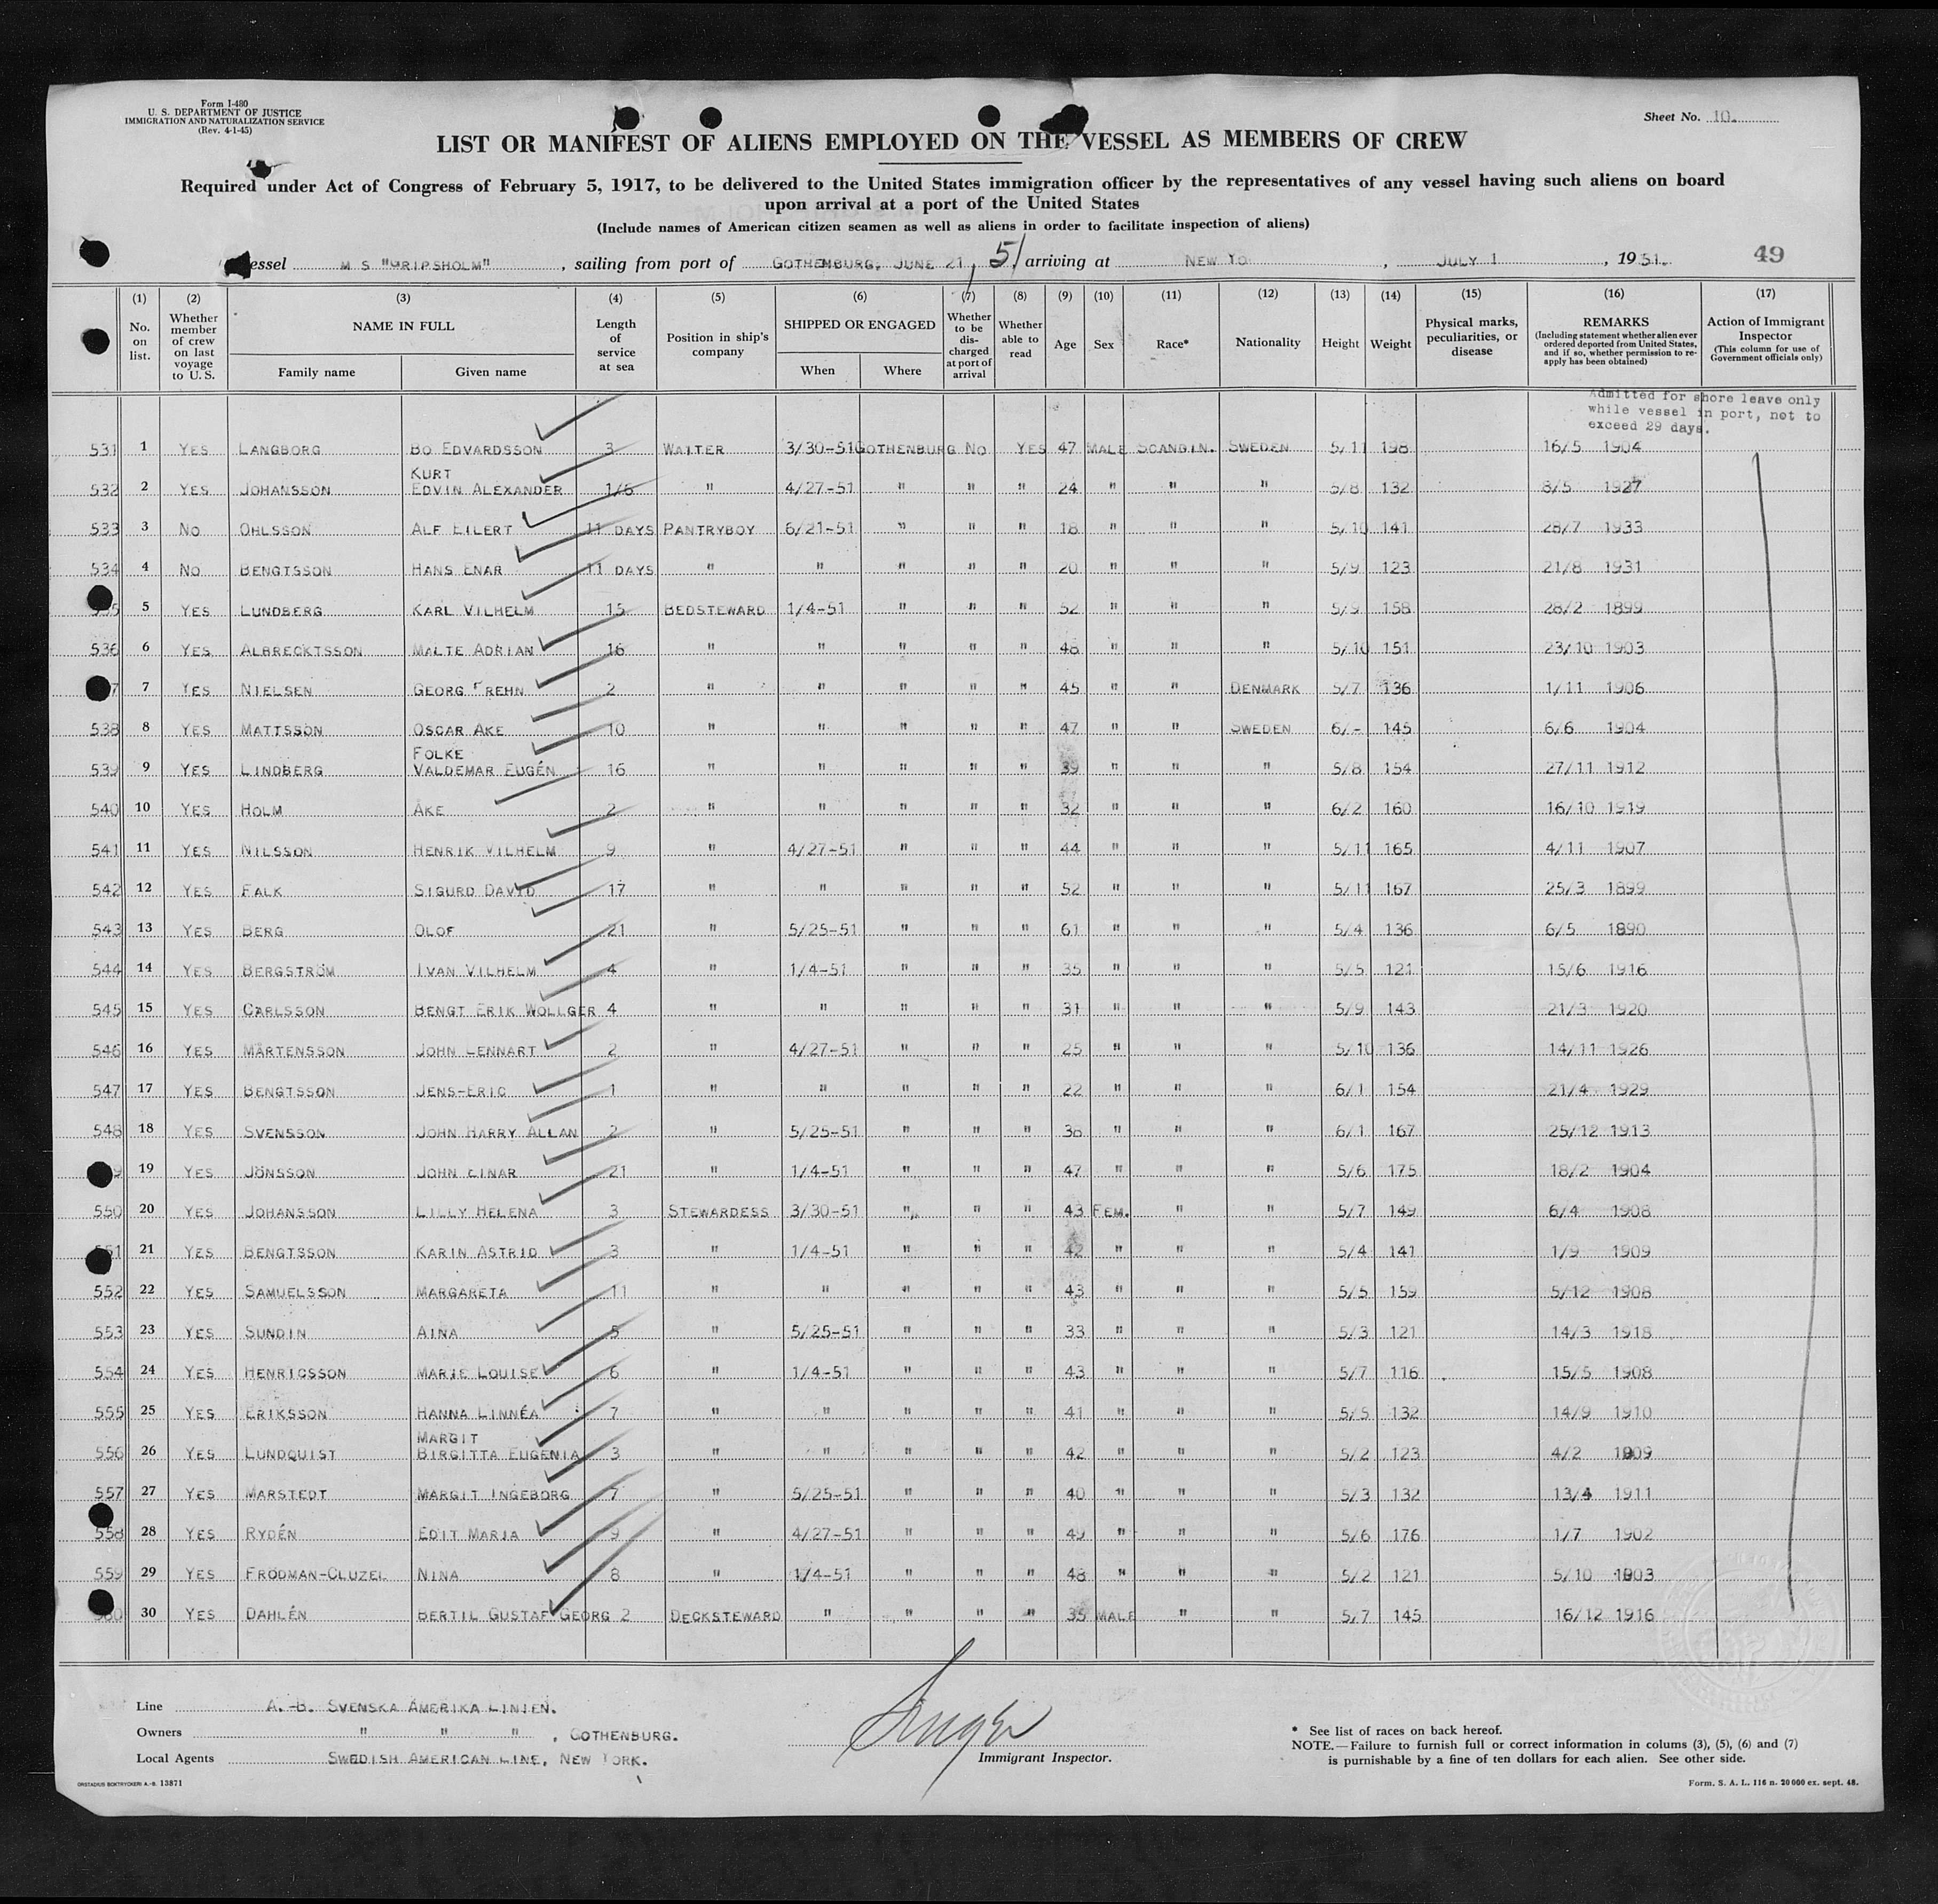 Form I-480
U. S. DEPARTMENT OF JUSTICE
IMMIGRATION AND NATURALIZATION SERVICE
(Rev. 4-1-45)
Sheet No. 10.
LIST OR MANIFEST OF ALIENS EMPLOYED ON THE VESSEL AS MEMBERS OF CREW
Required under Act of Congress of February 5, 1917, to be delivered to the United States immigration officer by the representatives of any vessel having such aliens on board
upon arrival at a port of the United States
(Include names of American citizen seamen as well as aliens in order to facilitate inspection of aliens)
essel M S "GRIPSHOLM", sailing from port of GOTHENBURG, JUNE 21, 51 arriving at NEW YO , JULY 1, 1951. 49
(1) (2) (3) (4) (5) (6) (7) (8) (9) (10) (11) (12) (13) (14) (15) (16) (17)
No. on list. Whether member of crew on last voyage to U. S. NAME IN FULL Family name Given name Length of service at sea Position in ship's company SHIPPED OR ENGAGED When Where Whether to be discharged at port of arrival Whether able to read Age Sex Race* Nationality Height Weight Physical marks, peculiarities, or disease REMARKS (Including statement whether alien ever ordered deported from United States, and if so, whether permission to reapply has been obtained) Action of Immigrant Inspector (This column for use of Government officials only)
Admitted for shore leave only
while vessel in port, not to
exceed 29 days.
531 1 YES LANGBORG BO EDVARDSSON 3 WAITER 3/30-51 GOTHENBURG NO YES 47 MALE SCANDIN. SWEDEN 5/11 198 16/5 1904
KURT
532 2 YES JOHANSSON EDVIN ALEXANDER 1/6 " 4/27-51 " " " 24 " " " 5/8 132 8/5 1927
533 3 NO OHLSSON ALF EILERT 11 DAYS PANTRYBOY 6/21-51 " " " 18 " " " 5/10 141 28/7 1933
534 4 NO BENGTSSON HANS ENAR 11 DAYS " " " " " 20 " " " 5/9 123 21/8 1931
5 5 YES LUNDBERG KARL VILHELM 15 BEDSTEWARD 1/4-51 " " " 52 " " " 5/9 158 28/2 1899
536 6 YES ALBRECKTSSON MALTE ADRIAN 16 " " " " " 48 " " " 5/10 151 23/10 1903
7 7 YES NIELSEN GEORG FREHN 2 " " " " " 45 " " DENMARK 5/7 136 1/11 1906
538 8 YES MATTSSON OSCAR AKE 10 " " " " " 47 " " SWEDEN 6/- 145 6/6 1904
FOLKE
539 9 YES LINDBERG VALDEMAR EUGÉN 16 " " " " " 39 " " " 5/8 154 27/11 1912
540 10 YES HOLM ÅKE 2 " " " " " 32 " " " 6/2 160 16/10 1919
541 11 YES NILSSON HENRIK VILHELM 9 " 4/27-51 " " " 44 " " " 5/11 165 4/11 1907
542 12 YES FALK SIGURD DAVID 17 " " " " " 52 " " " 5/11 167 25/3 1899
543 13 YES BERG OLOF 21 " 5/25-51 " " " 61 " " " 5/4 136 6/5 1890
544 14 YES BERGSTRÖM IVAN VILHELM 4 " 1/4-51 " " " 35 " " " 5/5 121 15/6 1916
545 15 YES CARLSSON BENGT ERIK WOLLGER 4 " " " " " 31 " " " 5/9 143 21/3 1920
546 16 YES MÅRTENSSON JOHN LENNART 2 " 4/27-51 " " " 25 " " " 5/10 136 14/11 1926
547 17 YES BENGTSSON JENS-ERIC 1 " " " " " 22 " " " 6/1 154 21/4 1929
548 18 YES SVENSSON JOHN HARRY ALLAN 2 " 5/25-51 " " " 38 " " " 6/1 167 25/12 1913
9 19 YES JÖNSSON JOHN EINAR 21 " 1/4-51 " " " 47 " " " 5/6 175 18/2 1904
550 20 YES JOHANSSON LILLY HELENA 3 STEWARDESS 3/30-51 " " " 43 FEM. " " 5/7 149 6/4 1908
551 21 YES BENGTSSON KARIN ASTRID 3 " 1/4-51 " " " 42 " " " 5/4 141 1/9 1909
552 22 YES SAMUELSSON MARGARETA 11 " " " " " 43 " " " 5/5 159 5/12 1908
553 23 YES SUNDIN AINA 5 " 5/25-51 " " " 33 " " " 5/3 121 14/3 1918
554 24 YES HENRICSSON MARIE LOUISE 6 " 1/4-51 " " " 43 " " " 5/7 116 15/5 1908
555 25 YES ERIKSSON HANNA LINNÉA 7 " " " " " 41 " " " 5/5 132 14/9 1910
MARGIT
556 26 YES LUNDQUIST BIRGITTA EUGENIA 3 " " " " " 42 " " " 5/2 123 4/2 1909
557 27 YES MARSTEDT MARGIT INGEBORG 7 " 5/25-51 " " " 40 " " " 5/3 132 13/4 1911
558 28 YES RYDÉN EDIT MARIA 9 " 4/27-51 " " " 49 " " " 5/6 176 1/7 1902
559 29 YES FRODMAN-CLUZEL NINA 8 " 1/4-51 " " " 48 " " " 5/2 121 5/10 1903
60 30 YES DAHLÉN BERTIL GUSTAF GEORG 2 DECKSTEWARD " " " " 35 MALE " " 5/7 145 16/12 1916
Line A.-B. SVENSKA AMERIKA LINIEN.
Owners " " " , GOTHENBURG.
Local Agents SWEDISH AMERICAN LINE, NEW YORK.
Immigrant Inspector.
* See list of races on back hereof.
NOTE.—Failure to furnish full or correct information in colums (3), (5), (6) and (7)
is purnishable by a fine of ten dollars for each alien. See other side.
ORSTADIUS BOKTRYCKERI A.-B. 13871
Form. S. A. L. 116 n. 20 000 ex. sept. 48.